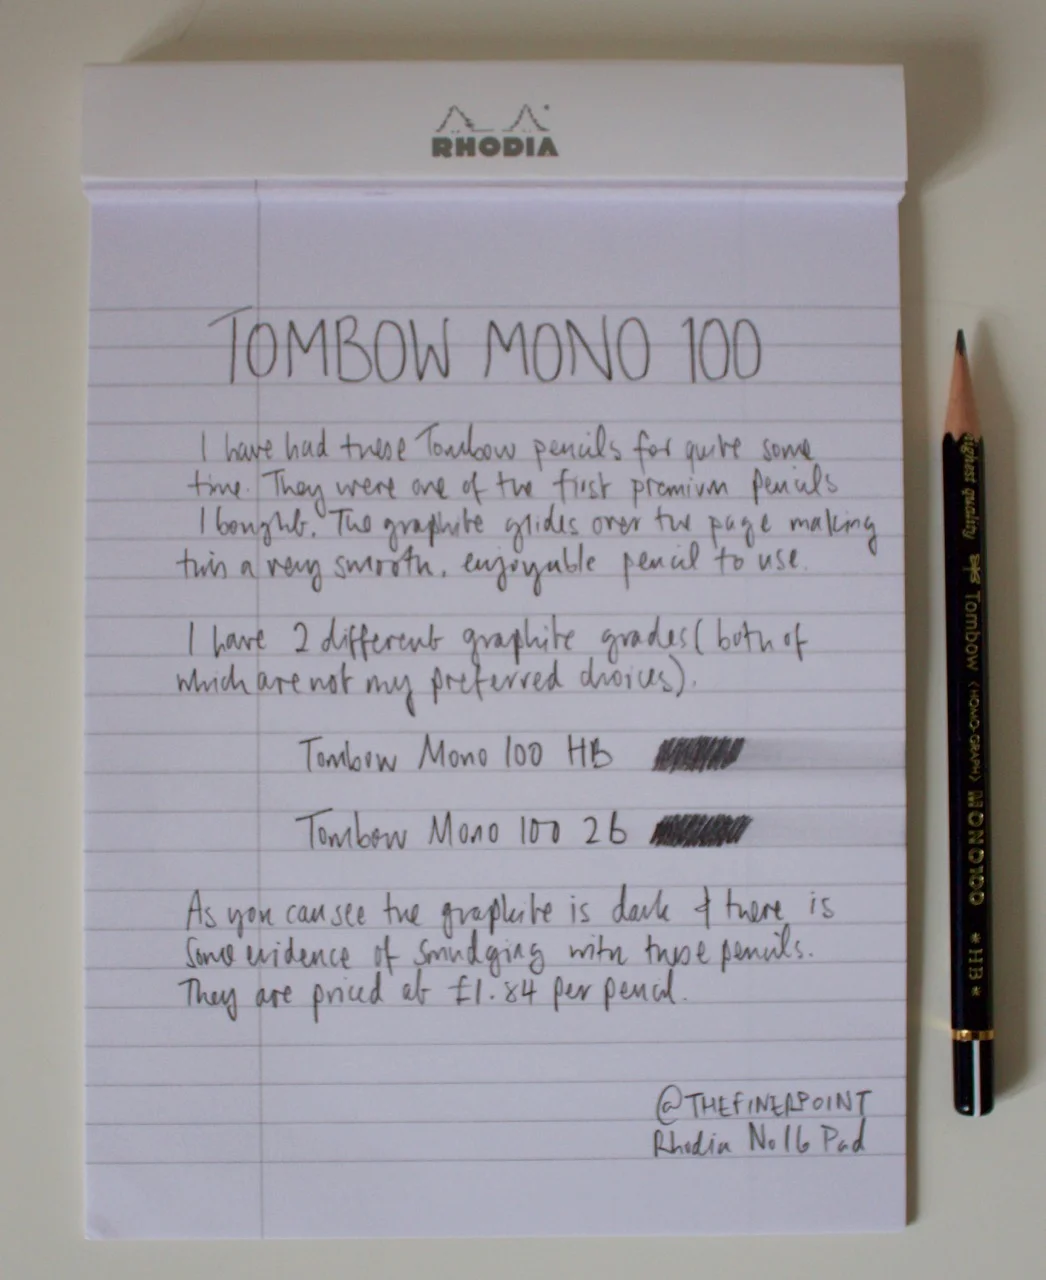 RHODIA
TOMBOW MONO 100
I have had these Tombow pencils for quite some
time. They were one of the first premium pencils
I bought. The graphite glides over the page making
this a very smooth, enjoyable pencil to use.
I have 2 different graphite grades (both of
which are not my preferred choices).
Tombow Mono 100 HB
Tombow Mono 100 2B
As you can see the graphite is dark & there is
some evidence of smudging with these pencils.
They are priced at £1.84 per pencil.
@THEFINERPOINT
Rhodia No16 Pad
Highest quality Tombow (HOMO-GRAPH) MONO100 *HB*